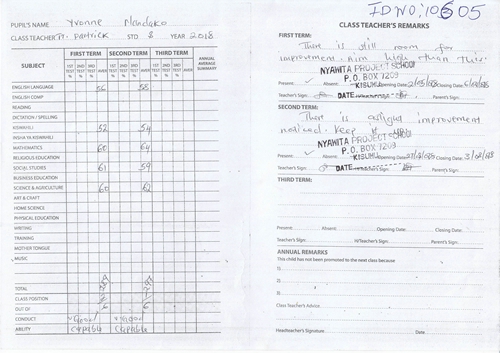 PUPIL'S NAME Yvonne Mandako
CLASS TEACHER Tr. Patrick STD 8 YEAR 2018
SUBJECT FIRST TERM SECOND TERM THIRD TERM ANNUAL AVERAGE SUMMARY
1ST TEST % 2ND TEST % 3RD TEST % AVER 1ST TEST % 2ND TEST % 3RD TEST % AVER 1ST TEST % 2ND TEST % 3RD TEST % AVER
ENGLISH LANGUAGE 56 58
ENGLISH COMP
READING
DICTATION / SPELLING
KISWAHILI 52 54
INSHA YA KISWAHILI
MATHEMATICS 60 64
RELIGIOUS EDUCATION
SOCIAL STUDIES 61 59
BUSINESS EDUCATION
SCIENCE & AGRICULTURE 60 62
ART & CRAFT
HOME SCIENCE
PHYSICAL EDUCATION
WRITING
TRAINING
MOTHER TONGUE
MUSIC
TOTAL
CLASS POSITION
OUT OF
CONDUCT Good Good
ABILITY Capable Capable
ID NO: 10605
CLASS TEACHER'S REMARKS
FIRST TERM:
There is still room for
improvement. Aim high than this.
NYAWITA PROJECT SCHOOL
P. O. BOX 7209
Present: Absent: KISUMU Opening Date: Closing Date:
Teacher's Sign: DATE Parent's Sign:
SECOND TERM:
There is a slight improvement
noticed. Keep it
NYAWITA PROJECT SCHOOL
P. O. BOX 7209
Present: Absent: KISUMU Opening Date: Closing Date:
Teacher's Sign: DATE Parent's Sign:
THIRD TERM:
Present: Absent: Opening Date: Closing Date:
Teacher's Sign: H/Teacher's Sign: Parent's Sign:
ANNUAL REMARKS
This child has not been promoted to the next class because
1)
2)
3)
Class Teacher's Advice
Headteacher's Signature Date